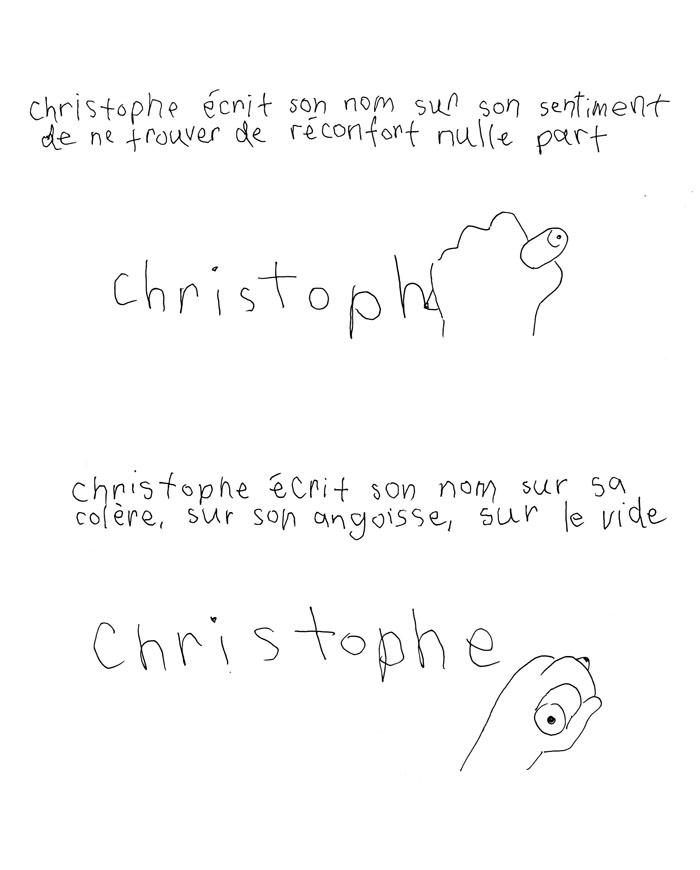 christophe écrit son nom sur son sentiment
de ne trouver de réconfort nulle part
christoph
christophe écrit son nom sur sa
colère, sur son angoisse, sur le vide
christophe